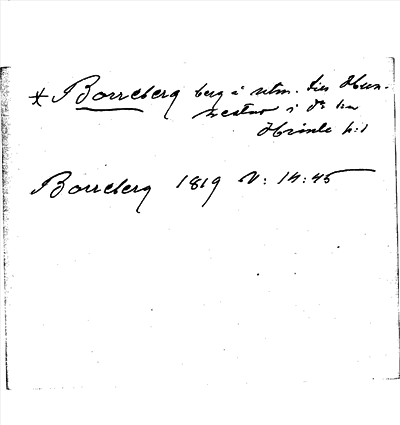 * Borreberg berg å utm. till Hun-
nestad i Ds hn
Himle h:d
Borreberg 1819 V: 14:45